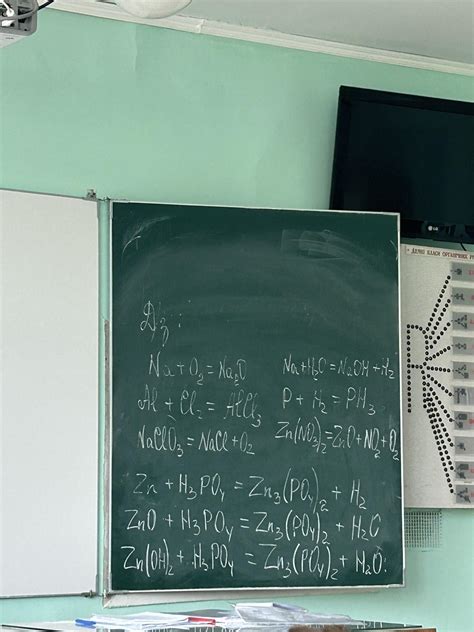 Дз:
Na + O₂ = Na₂O
Na + H₂O = NaOH + H₂
Al + Cl₂ = AlCl₃
P + H₂ = PH₃
NaClO₃ = NaCl + O₂
Zn(NO₃)₂ = ZnO + NO₂ + O₂
Zn + H₃PO₄ = Zn₃(PO₄)₂ + H₂
ZnO + H₃PO₄ = Zn₃(PO₄)₂ + H₂O
Zn(OH)₂ + H₃PO₄ = Zn₃(PO₄)₂ + H₂O
LG
ДЕЯКІ КЛАСИ ОРГАНІЧНИХ